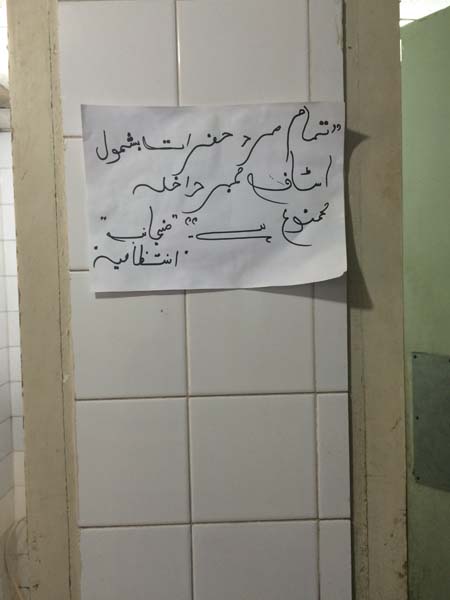 "تمام مرد حضرات بشمول
اسٹاف ممبر داخلہ
ممنوع ہے" "منجانب"
انتظامیہ